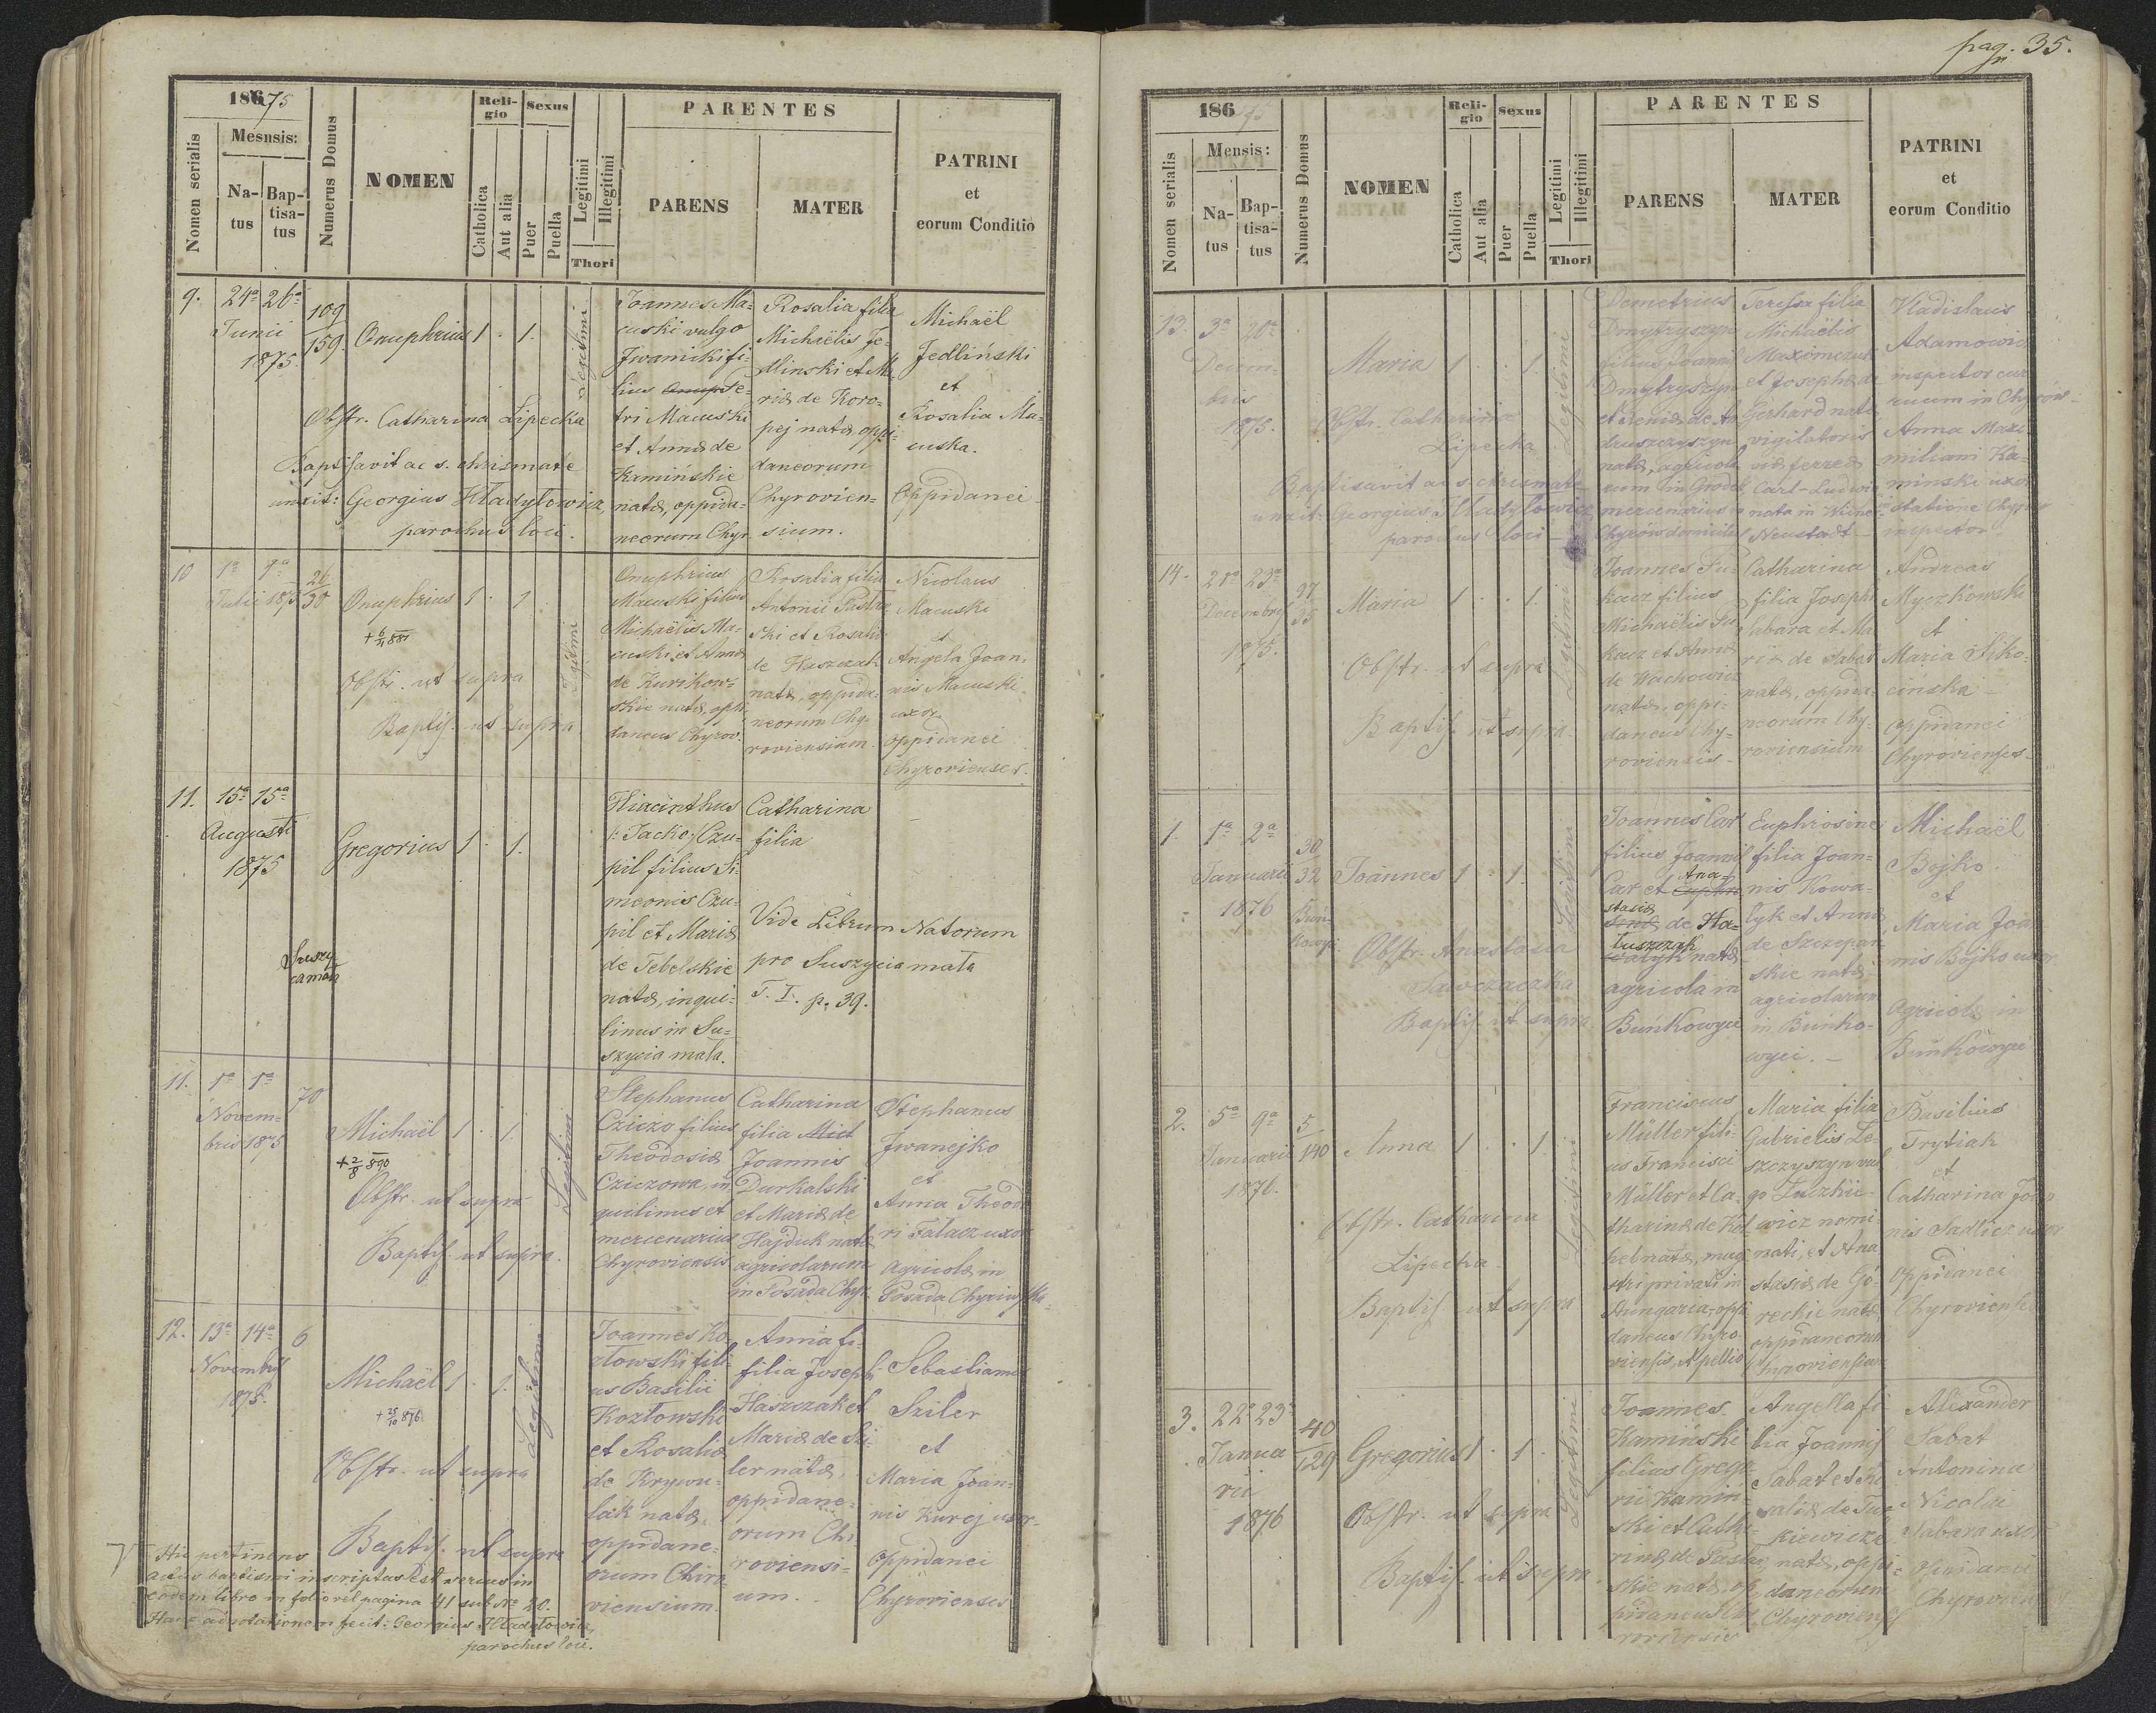 pag. 35.
1875
Nomen serialis
Mesnsis:
Na-
tus
Bap-
tisa-
tus
Numerus Domus
NOMEN
Reli-
gio
Catholica
Aut alia
Sexus
Puer
Puella
Legitimi
Illegitimi
Thori
PARENTES
PARENS
MATER
PATRINI
et
eorum Conditio
9.
24a 26a
Junii
1875.
109
159.
Onuphrius 1 . 1.
Legitimi
Obstr. Catharina Lipecka
Baptisavit ac s. chrismate
unxit: Georgius Hładyłowicz
parochus loci.
Joannes Ma=
cuski vulgo
Iwanicki fi-
lius Pe-
tri Macuski
et Annæ de
Kamińskie
natæ, oppida-
neorum Chyr.
Rosalia filia
Michaelis Je-
dlinski et Ma
riæ de Koro=
pej natæ, oppi-
daneorum
Chyrovien=
sium.
Michaël
Jedliński
et
Rosalia Ma-
cuska.
Oppidanei
10
1a 4a
Julii 1875
26
30
Onuphrius 1 . 1
Legitimi
Obstr. ut supra
Baptis. ut supra
Onuphrius
Macuski filius
Michaëlis Ma-
cuski et Annæ
de Kurikow-
skie natæ, oppi-
daneus Chyrov.
Rosalia filia
Antonii
ski et Rosaliæ
de Haszczak
natæ, oppida-
neorum Chy-
roviensium.
Nicolaus
Macuski
et
Angela Joan-
nis Macuski
uxor
oppidanei
Chyrovienses.
11.
15a 15a
Augusti
1875
Gregorius 1 . 1.
Suszy
ca mała
Hiacinthus
/: Jacko :/ Czu-
pil filius Si-
meonis Czu-
pil et Mariæ
de Tebelskie
natæ, inqui-
linus in Su-
szyca mała.
Catharina
filia
Vide Librum Natorum
pro Suszycia mała
T. I. p. 39.
11.
1a 1a
Novem-
bris 1875
70
Michaël 1 . 1.
+ 2/8 890
Legitimi
Obstr. ut supra
Baptis. ut supra.
Stephanus
Cziczo filius
Theodosiæ
Cziczowa, in
quilinus et
mercenarius
Chyroviensis
Catharina
filia Mich
Joannis
Durkalski
et Mariæ de
Hajduk natæ
agricolarum
in Posada Chyr.
Stephanus
Iwanejko
et
Anna Theodo
ri Fałacz uxor
Agricolæ in
Posada
12.
13a 14a
Novembris
1875.
6
Michaël 1 . 1.
+ 25/10 876
Legitimi
Obstr. ut supra
Baptis. ut supra
Joannes Ko-
złowski fili-
us Basilii
Kozłowski
et Rosaliæ
de Krywu-
lak natæ,
oppidane-
orum Chiro
viensium.
Anna fi-
filia Josephi
Haszczak et
Mariæ de Szi-
ler natæ,
oppidane-
orum Chi
roviensi-
um.
Sebastianus
Sziler
et
Maria Joan-
nis Kurej uxor.
Oppidanei
Chyrovienses
Huc pertinens
actus baptismi inscriptus est verius in
eodem libro in folio vel pagina 41 sub No 20.
Hanc adnotationem fecit: Georgius Hładyłowicz,
parochus loci.
186
Nomen serialis
Mensis:
Na-
tus
Bap-
tisa-
tus
Numerus Domus
NOMEN
Reli-
gio
Catholica
Aut alia
Sexus
Puer
Puella
Legitimi
Illegitimi
Thori
PARENTES
PARENS
MATER
PATRINI
et
eorum Conditio
13.
3a 20a
Decem-
bris
1875.
Maria 1 . . 1.
Legitimi
Obstr. Catharina
Lipecka
Baptisavit ac s. chrismate
unxit: Georgius Hładyłowicz
parochus loci
Demetrius
Dmytryszyn
filius Joannis
Dmytryszyn
natæ, agricola
rum in Grodek
mercenarius in
Chyrów domicil
Teressa filia
Michaëlis
Maximczuk
et Josephæ de
Gerhard natæ
vigilatoris
viæ ferreæ
Carl-Ludwi
nata in Wiener
Neustadt
Vladislaus
Adamowicz
inspector cur
ruum in Chyrów
Anna Maxi
miliani Ka-
minski uxor
statione Chyrov
inspector
14.
21a 23a
Decembris
1875.
97
35
Maria 1 . . 1.
Legitimi
Obstr. ut supra
Baptis. ut supra.
Joannes Pu-
kacz filius
Michaëlis Pu
kacz et Annæ
de Wachowicz
natæ, oppi-
daneus Chy-
roviensis
Catharina
filia Josephi
Sabara et Ma
riæ de Sabat
natæ, oppida-
neorum Chy-
roviensium
Andreas
Myczkowski
et
Maria Siko-
cińska
Oppidanei
Chyrovienses
1.
1a 2a
Januarii
1876
30
32
Buń-
kowyci
Joannes 1 . 1.
Legitimi
Obstr. Anastasia
Sawczaczka
Baptis. ut supra
Joannes Car
filius Joannis
Car et Ana-
stasiæ de Ha-
łuszczak
natæ
agricola in
Buńkowyci
Euphrosine
filia Joan-
nis Kowa-
lyk et Annæ
de Szczepan
skie natæ
agricolarum
in Buńko-
wyci.
Michaël
Bojko
et
Maria Joan
nis Bojko uxor
Agricolæ in
Buńkowyci
2.
5a 9a
Januarii
1876.
5
140
Anna 1 . . 1
Legitimi
Obstr. Catharina
Lipecka
Baptis. ut supra
Franciscus
Müller fili-
us Francisci
Müller et Ca-
tharinæ de Kol
bel natæ, mag
stri privati in
Hungaria, oppi
daneus Chyro-
viensis,
Maria filia
Gabrielis Le-
szczyszyn vul
go Luczkie-
wicz nomi-
nati, et Ana
stasiæ de Gó-
reckie natæ
oppidaneorum
Chyroviensium
Basilius
Trytiak
et
Catharina Joan
nis Sadlicz uxor
Oppidanei
Chyrovienses
3.
22a 23a
Janua
rii
1876
40
129
Gregorius 1 . 1.
Legitimi
Obstr. ut supra
Baptis. ut supra
Joannes
Kamiński
filius Grego
rii Kamiń-
ski et Catha-
rinæ de
skie natæ, op
pidaneus Chy
roviensis
Angella fi
lia Joannis
Sabat et Ro
saliæ de Tur-
kiewicze
natæ, oppi-
daneorum
Chyroviens
Alexander
Sabat
Antonina
Nicolai
Sabara uxor
Oppidanei
Chyrovienses